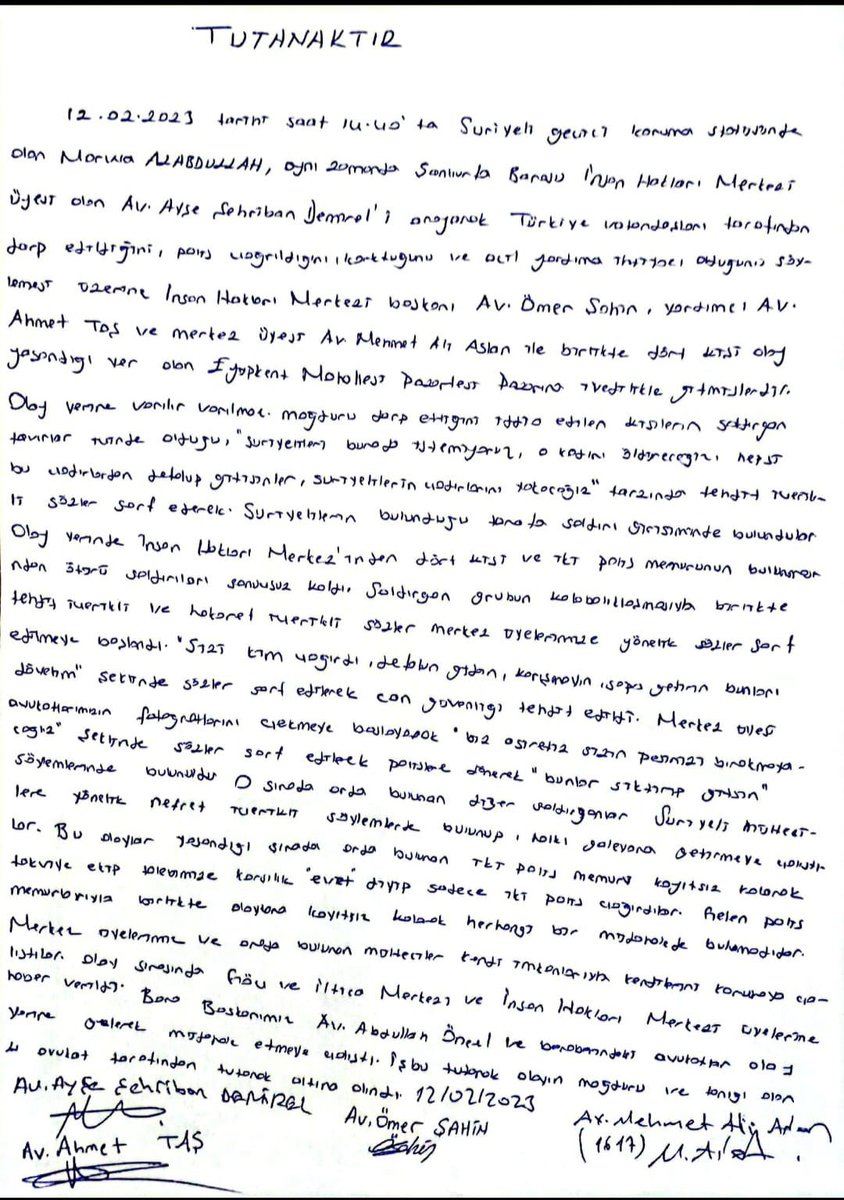 TUTANAKTIR
12.02.2023 tarihi saat 14.40'ta Suriyeli geçici koruma statüsünde
olan Morula ALABDULLAH, aynı zamanda Şanlıurfa Barosu İnsan Hakları Merkezi
üyesi olan Av. Ayşe Şehriban Demirel'i arayarak Türkiye vatandaşları tarafından
darp edildiğini, polis çağrıldığını, korktuğunu ve acil yardıma ihtiyacı olduğunu söy-
lemesi üzerine İnsan Hakları Merkezi başkanı Av. Ömer Şahin, yardımcı Av.
Ahmet Taş ve merkez üyesi Av. Mehmet Ali Aslan ile birlikte dört kişi olay
yaşandığı yer olan Eyyüpkent Mahallesi Pazartesi Pazarına ivedilikle gitmişlerdir.
Olay yerine varılır varılmaz mağduru darp ettiğini iddia edilen kişilerin saldırgan
tavırlar içinde olduğu, "suriyelileri burada istemiyoruz, o kadını öldüreceğiz, hepsi
bu çadırlardan defolup gitsinler, suriyelilerin çadırlarını yakacağız" tarzında tehdit içerik-
li sözler sarf ederek. Suriyelilerin bulunduğu tarafa saldırı girişiminde bulundular
Olay yerinde İnsan Hakları Merkez'inden dört kişi ve iki polis memurunun bulunması-
ndan ötürü saldırıları sonuçsuz kaldı. Saldırgan grubun kalabalıklaşmasıyla birlikte
tehdit içerikli ve hakaret içerikli sözler merkez üyelerimize yönelik sözler sarf
edilmeye başlandı. "Sizi kim çağırdı, defolun gidin, karışmayın, sopa getirin bunları
dövelim" şeklinde sözler sarf edilerek can güvenliği tehdit edildi. Merkez üyesi
avukatlarımızın fotoğraflarını çekmeye başlayarak "biz aşiretiz sizin peşinizi bırakmaya-
cağız" şeklinde sözler sarf edilerek polislere dönerek "bunlar siktirip gitsin"
söylemlerinde bulunuldu O sırada orda bulunan diğer saldırganlar Suriyeli mülteci-
lere yönelik nefret içerikli söylemlerde bulunup, halkı galeyana getirmeye çalıştı-
lar. Bu olaylar yaşandığı sırada orda bulunan iki polis memuru kayıtsız kalarak
takviye ekip talebimize karşılık "evet" deyip sadece iki polis çağırdılar. Gelen polis
memurlarıyla birlikte olaylara kayıtsız kalarak herhangi bir müdahalede bulunmadılar.
Merkez üyelerimiz ve orada bulunan mülteciler kendi imkanlarıyla kendilerini korumaya ça-
lıştılar. Olay sırasında Göç ve İltica Merkezi ve İnsan Hakları Merkezi üyelerine
haber verildi. Baro Başkanımız Av. Abdullah Öncel ve beraberindeki avukatlar olay
yerine gelerek müdahale etmeye çalıştı. İşbu tutanak olayın mağduru ve tanığı olan
4 avukat tarafından tutanak altına alındı. 12/02/2023
Av. Ayşe Şehriban DEMİREL
Av. Ömer ŞAHİN
Av. Mehmet Ali Aslan
(1617)
Av. Ahmet TAŞ